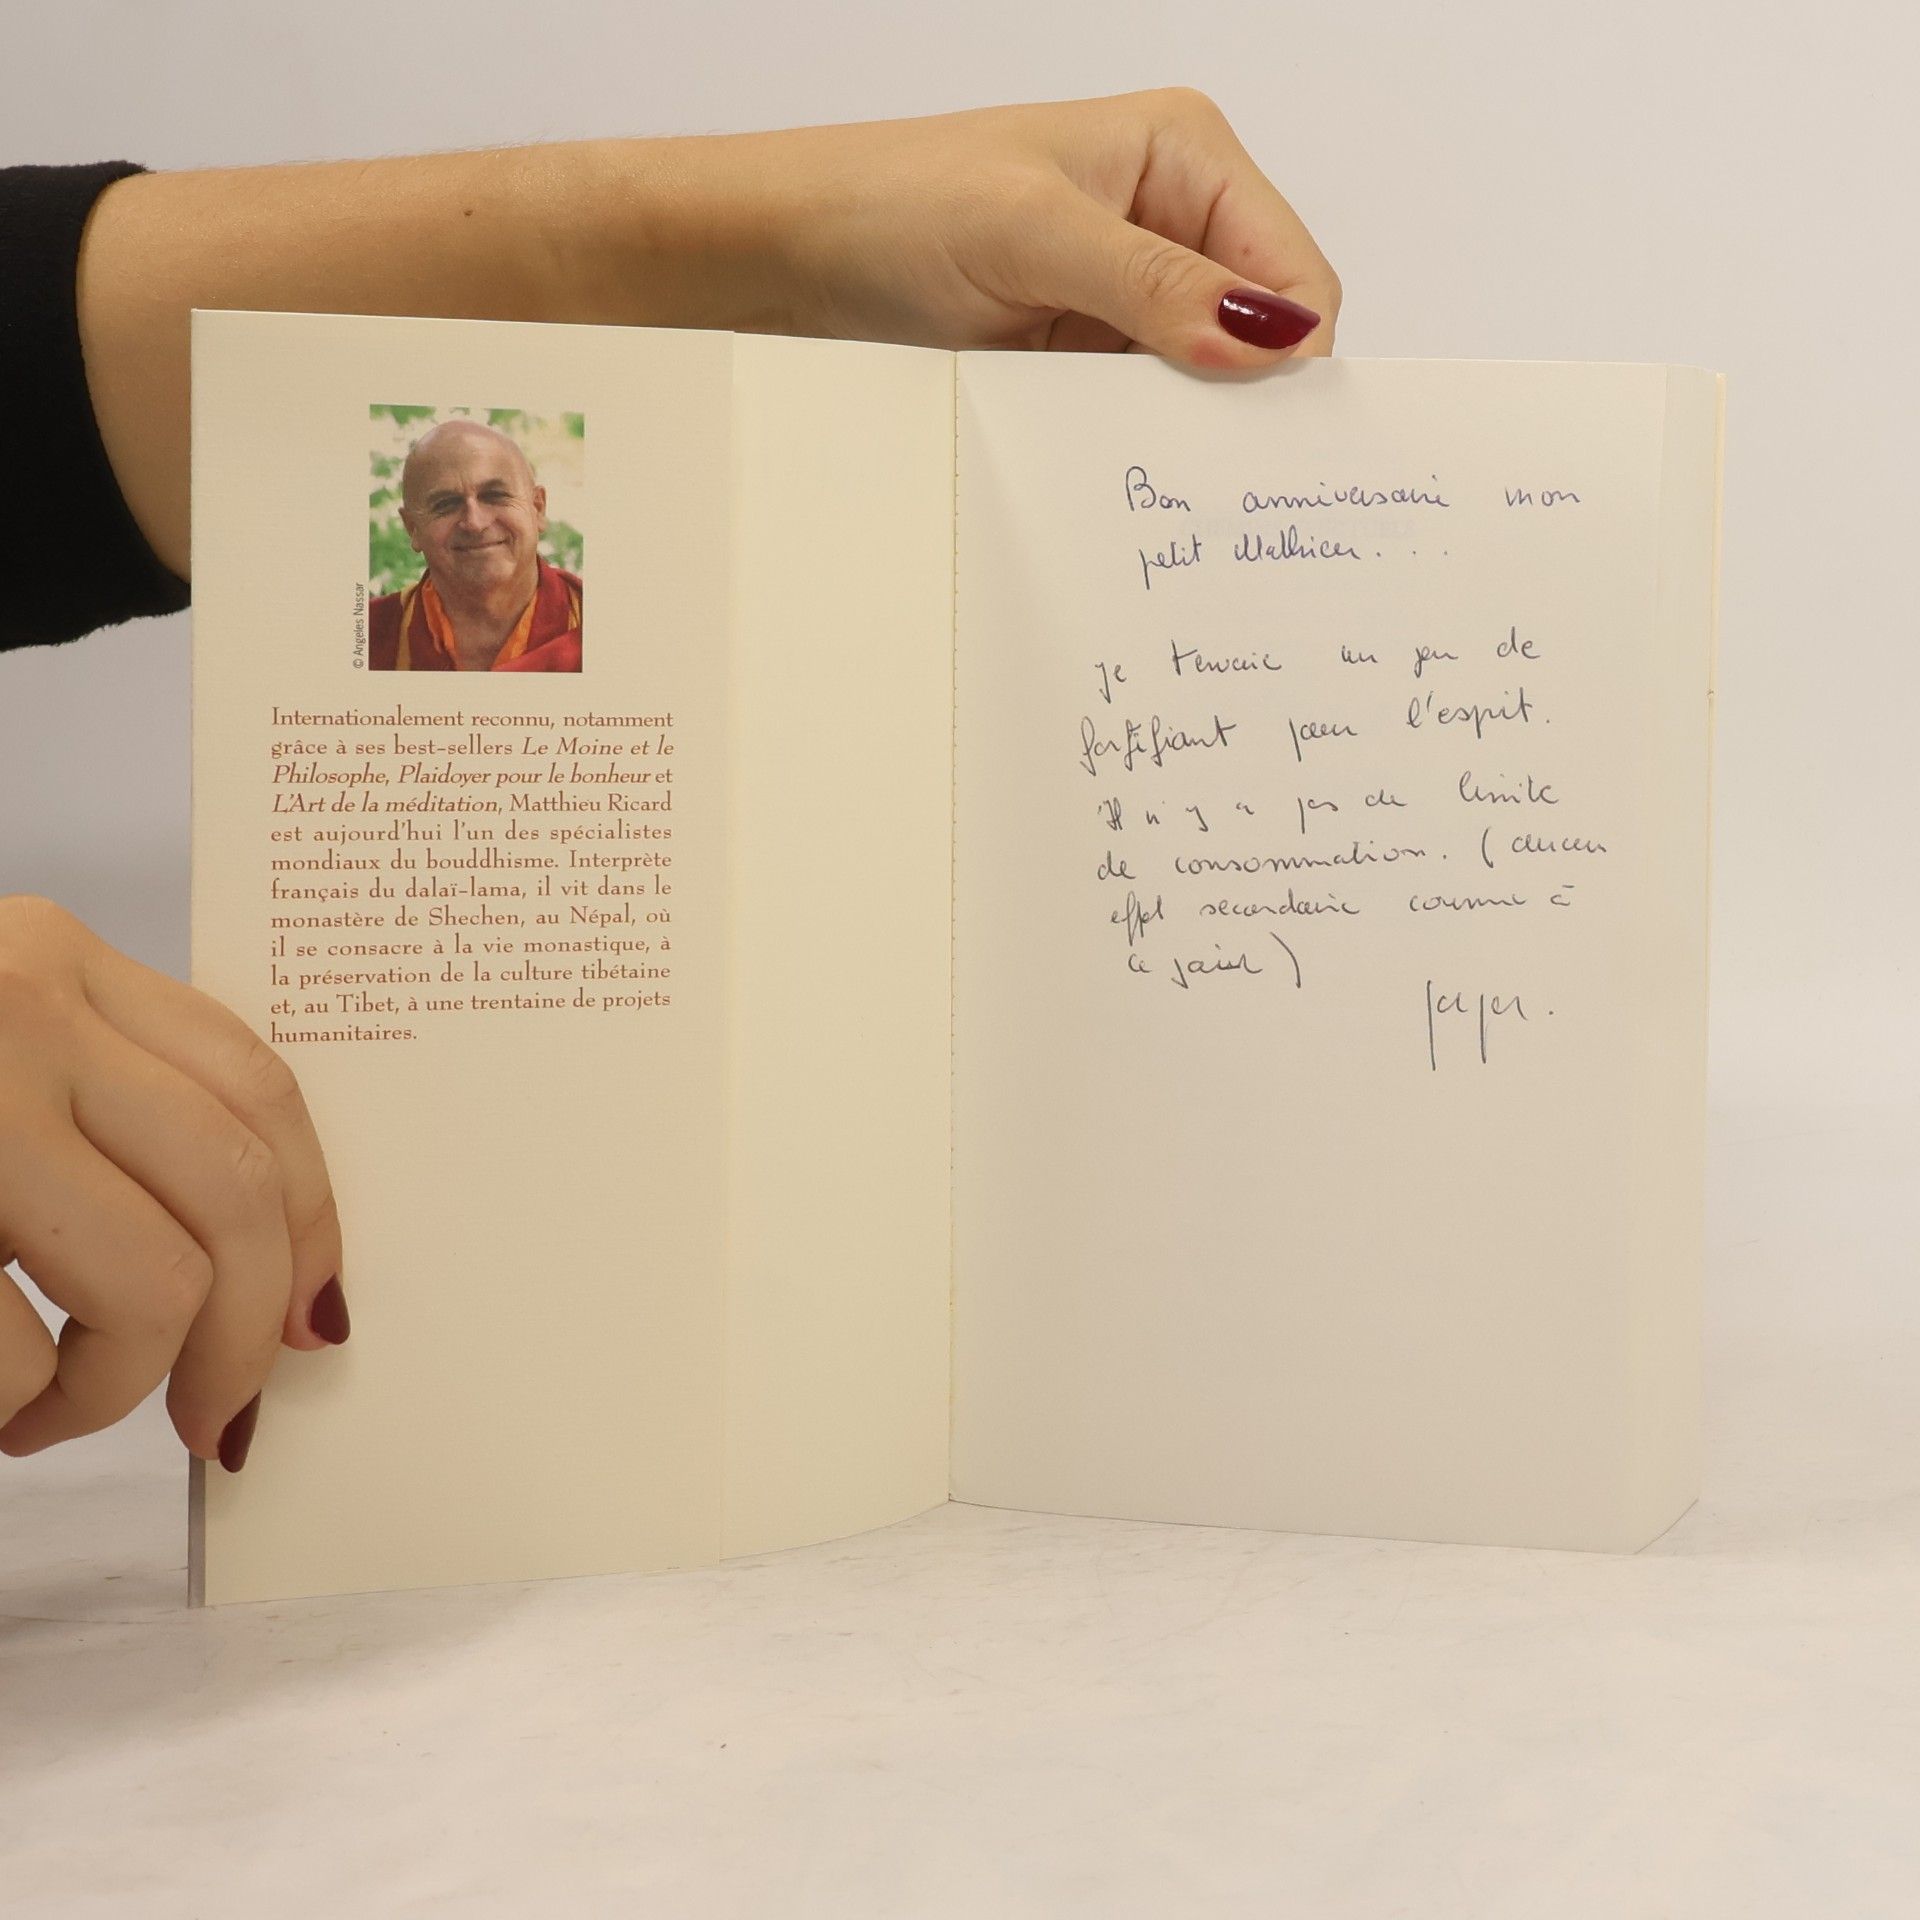 © Angeles Nassar
Internationalement reconnu, notamment
grâce à ses best-sellers Le Moine et le
Philosophe, Plaidoyer pour le bonheur et
L'Art de la méditation, Matthieu Ricard
est aujourd'hui l'un des spécialistes
mondiaux du bouddhisme. Interprète
français du dalaï-lama, il vit dans le
monastère de Shechen, au Népal, où
il se consacre à la vie monastique, à
la préservation de la culture tibétaine
et, au Tibet, à une trentaine de projets
humanitaires.
Bon anniversaire mon
petit Mathieu...
Je un peu de
fortifiant pour l'esprit.
Il n'y a pas de limite
de consommation. (aucun
effet secondaire connu à
ce jour)